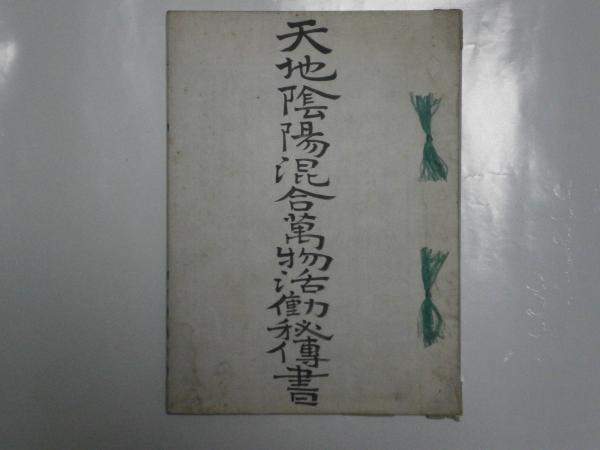 天地陰陽混合萬物活動秘傳書